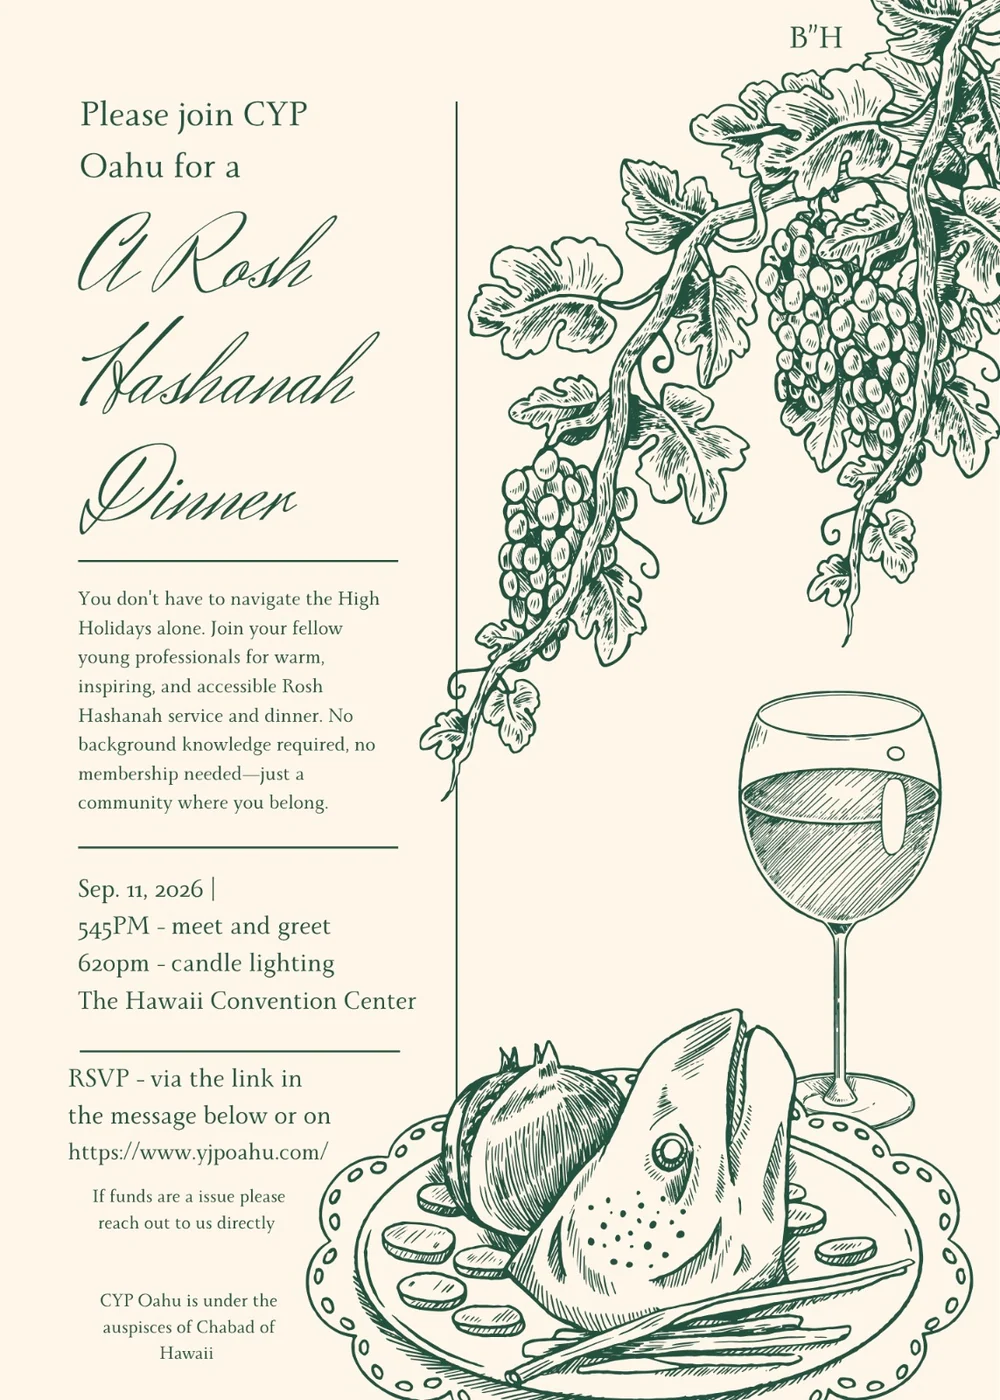 B”H
Please join CYP
Oahu for a
A Rosh
Hashanah
Dinner
You don't have to navigate the High
Holidays alone. Join your fellow
young professionals for warm,
inspiring, and accessible Rosh
Hashanah service and dinner. No
background knowledge required, no
membership needed—just a
community where you belong.
Sep. 11, 2026 |
545PM - meet and greet
620pm - candle lighting
The Hawaii Convention Center
RSVP - via the link in
the message below or on
https://www.yjpoahu.com/
If funds are a issue please
reach out to us directly
CYP Oahu is under the
auspisces of Chabad of
Hawaii